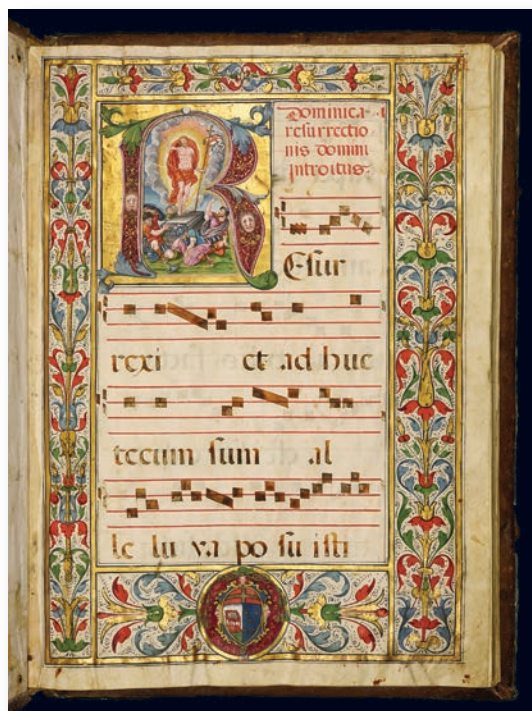 Dominica
resurrectio
nis domini
introitus.
R
Esur
rexi et ad huc
tecum sum al
le lu ya po su isti